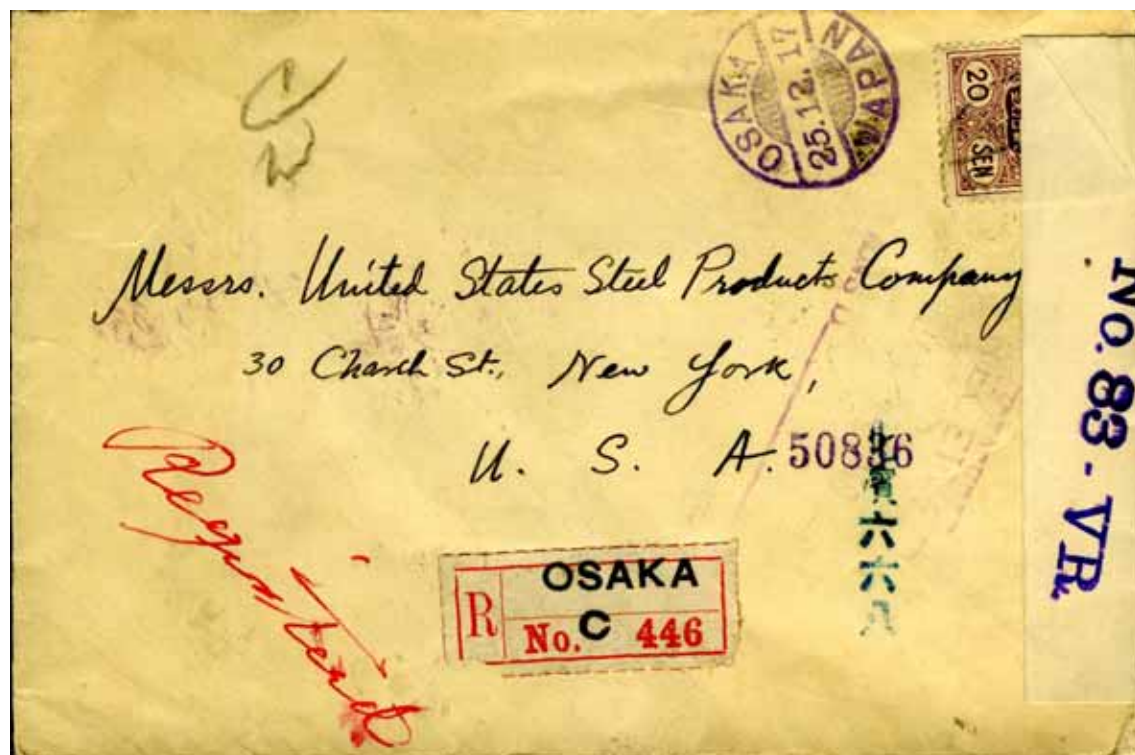 C
W
OSAKA
25.12.17
JAPAN
20 SEN
Messrs. United States Steel Products Company
30 Church St., New York,
U. S. A.
50836
濱六六八
Registered
R OSAKA
No. C 446
No. 83 - VR.